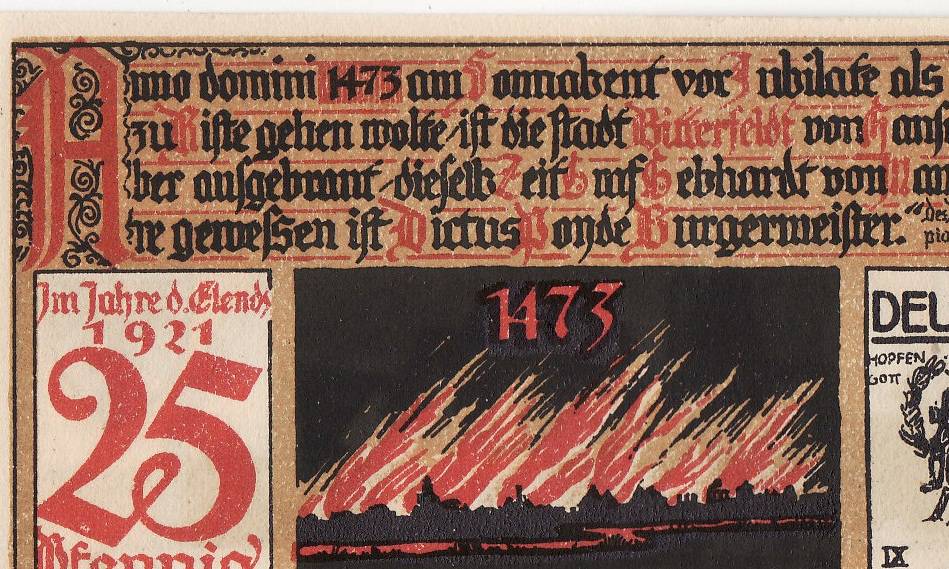 Anno domini 1473 am Sonnabent vor Jubilate als
zu Riste gehen wolte, ist die stadt Bitterfeldt von Hans
ber ausgebrant, dieselb Zeit G raf Gebhardt von Man
re gewessen ist Dictus Ponde Burgermeister."
Im Jahre d. Elends
1921
25
Pfennig
1473
DEU
HOPFEN
GOTT
IX